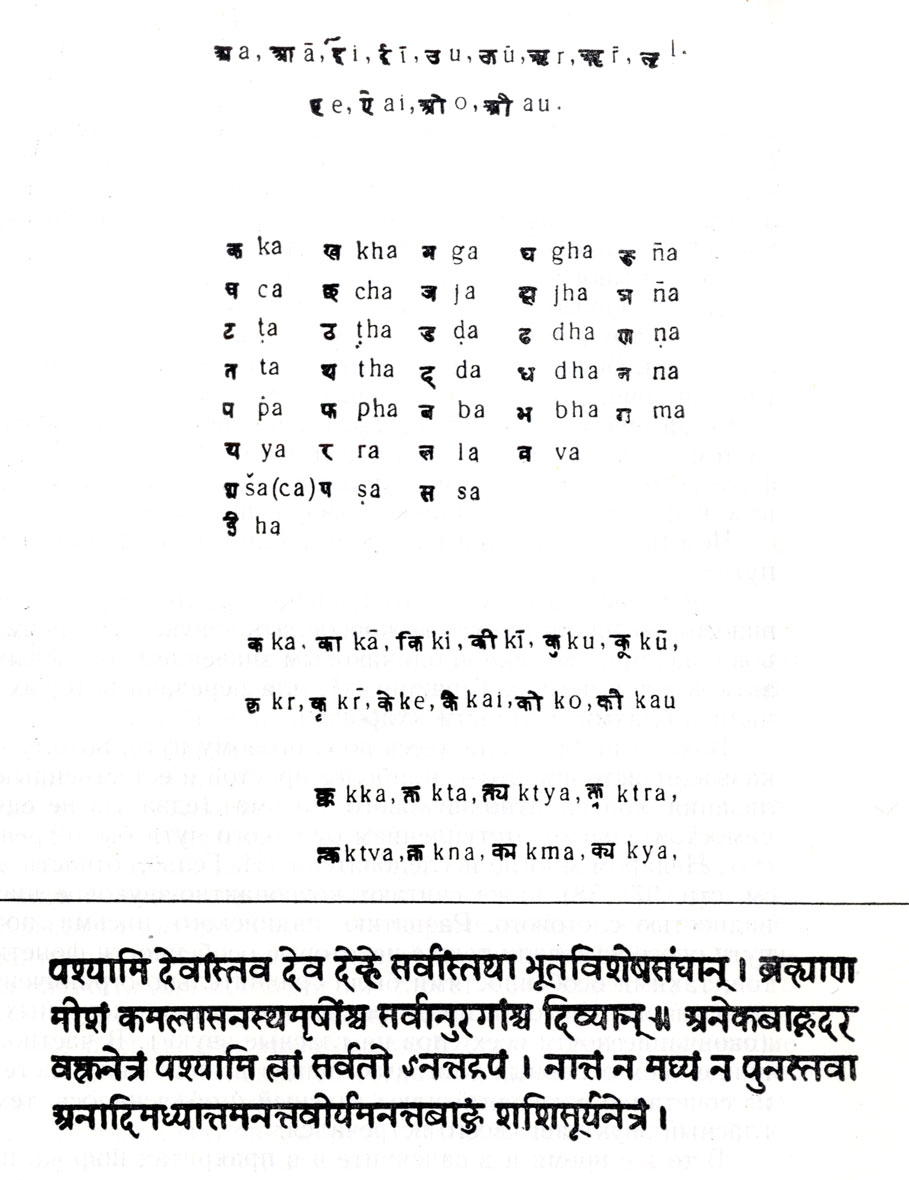 अ a, आ ā, इ i, ई ī, उ u, ऊ ū, ऋ r, ॠ r̄, ऌ l.
ए e, ऐ ai, ओ o, औ au.
क ka ख kha ग ga घ gha ङ n̄a
च ca छ cha ज ja झ jha ञ ña
ट ṭa ठ ṭha ड ḍa ढ dha ण ṇa
त ta थ tha द da ध dha न na
प pa फ pha ब ba भ bha म ma
य ya र ra ल la व va
श ša(ca) ष ṣa स sa
ह ha
क ka, का kā, कि ki, की kī, कु ku, कू kū,
कृ kr, कॄ kr̄, के ke, कै kai, को ko, कौ kau
क्क kka, क्त kta, क्त्य ktya, क्त्र ktra,
क्त्व ktva, क्न kna, क्म kma, क्य kya,
पश्यामि देवांस्तव देव देहे सर्वांस्तथा भूतविशेषसंघान् । ब्रह्माण
मीशं कमलासनस्थमृषींश्च सर्वानुरगांश्च दिव्यान् ॥ अनेकबाहूदर
वक्त्रनेत्रं पश्यामि त्वां सर्वतो ऽनन्तरूपं । नान्तं न मध्यं न पुनस्तवा
अनादिमध्यान्तमनन्तवीर्यमनन्तबाहुं शशिसूर्यनेत्रं ।